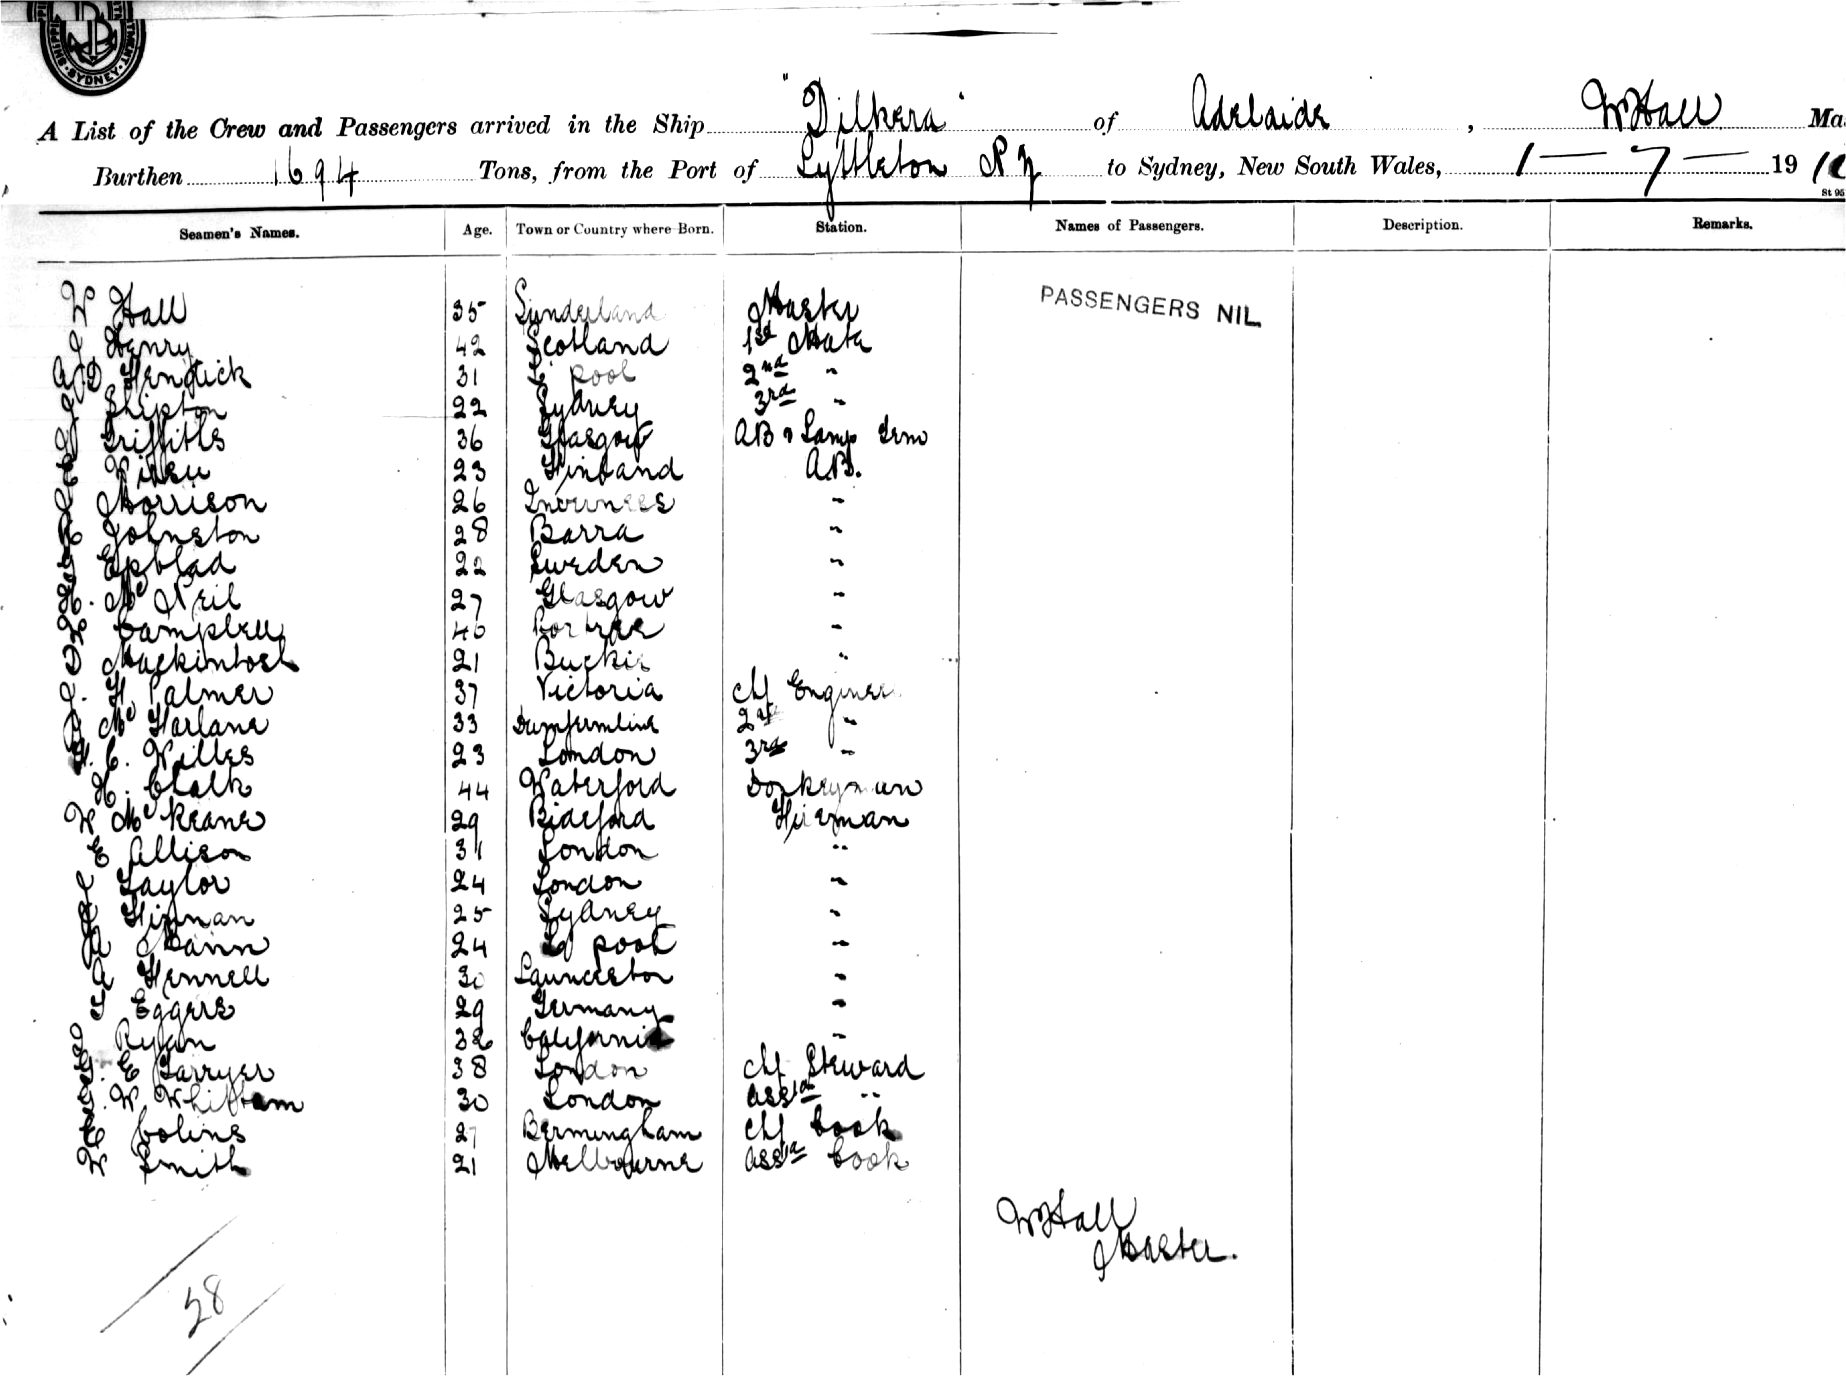 SYDNEY
A List of the Crew and Passengers arrived in the Ship "Dilkera" of Adelaide, W Hall Ma
Burthen 1694 Tons, from the Port of Lyttleton N Z to Sydney, New South Wales, 1 — 7 — 19
St 95
Seamen's Names. Age. Town or Country where Born. Station. Names of Passengers. Description. Remarks.
W Hall 35 Sunderland Master PASSENGERS NIL
J Henry 42 Scotland 1st Mate
31 L' pool 2nd "
J Shipton 22 Sydney 3rd "
Griffiths 36 Glasgow AB & Lamp Trm
23 Finland A.B.
J Morrison 26 Inverness "
Johnston 28 Barra "
22 Sweden "
H. Mc Neil 27 Glasgow "
Campbell 46 Portree "
D Mackintosh 21 Buckie "
J. H Palmer 37 Victoria chf Engineer
Mc Farlane 33 Dumfermline 2nd "
H. C. Willes 23 London 3rd "
H. Clalk 44 Waterford Donkeyman
W Mc Keane 29 Bideford Fireman
E Allison 31 London "
J Taylor 24 London "
25 Sydney "
Mann 24 L' pool "
A Fennell 30 Launceston "
F Eggers 29 Germany "
Ryan 32 California "
G. E Garryer 38 London chf Steward
W Whittam 30 London asst "
C Colins 27 Bermingham chf Cook
W Smith 21 Melbourne asst Cook
W Hall
Master.
28